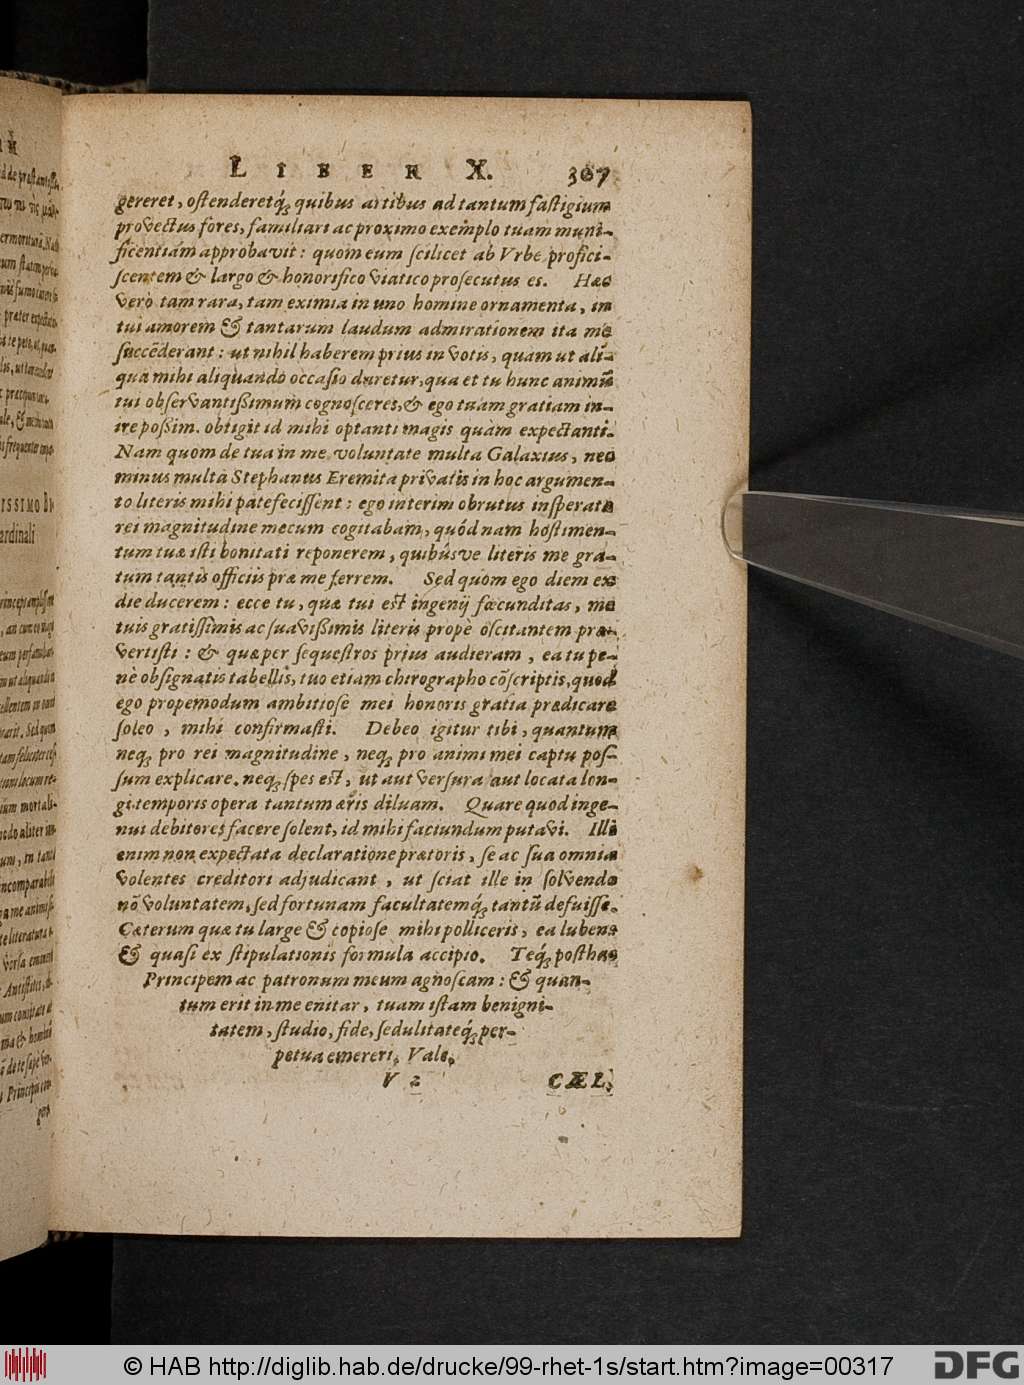 LIBER X. 307
gereret, ostenderetq́; quibus artibus ad tantum fastigium
provectus fores, familiari ac proximo exemplo tuam muni-
ficentiam approbavit: quom eum scilicet ab Vrbe profici-
scentem & largo & honorifico viatico prosecutus es. Hæc
verò tam rara, tam eximia in uno homine ornamenta, in
tui amorem & tantarum laudum admirationem ita me
succēderant: ut nihil haberem prius in votis, quam ut ali-
qua mihi aliquando occasio daretur, qua et tu hunc animū
tui observantißimum cognosceres, & ego tuam gratiam in-
ire poßim. obtigit id mihi optanti magis quàm expectanti.
Nam quom de tua in me voluntate multa Galaxius, nec
minus multa Stephanus Eremita privatis in hoc argumen-
to literis mihi patefecissent: ego interim obrutus insperata
rei magnitudine mecum cogitabam, quód nam hostimen-
tum tuæ isti bonitati reponerem, quibûsve literis me gra-
tum tantis officiis præ me ferrem. Sed quom ego diem ex
die ducerem: ecce tu, quæ tui est ingenij fœcunditas, me
tuis gratissimis ac suavißimis literis propè oscitantem præ-
vertisti: & quæ per sequestros prius audieram, ea tu pe-
nè obsignatis tabellis, tuo etiam chirographo cōscriptis, quod
ego propemodum ambitiose mei honoris gratia prædicare
soleo, mihi confirmasti. Debeo igitur tibi, quantum
neq; pro rei magnitudine, neq; pro animi mei captu pos-
sum explicare. neq; spes est, ut aut versura aut locata lon-
gi temporis opera tantum æris diluam. Quare quod inge-
nui debitores facere solent, id mihi faciundum putavi. Illi
enim non expectata declaratione prætoris, se ac sua omnia
volentes creditori adjudicant, ut sciat ille in solvendo
nō voluntatem, sed fortunam facultatemq́; tantū defuisse.
Cæterum quæ tu large & copiose mihi polliceris, ea lubens
& quasi ex stipulationis formula accipio. Teq́; posthac
Principem ac patronum meum agnoscam: & quan-
tum erit in me enitar, tuam istam benigni-
tatem, studio, fide, sedulitateq́; per-
petua emereri. Vale.
V 2 CÆL.
© HAB http://diglib.hab.de/drucke/99-rhet-1s/start.htm?image=00317
DFG